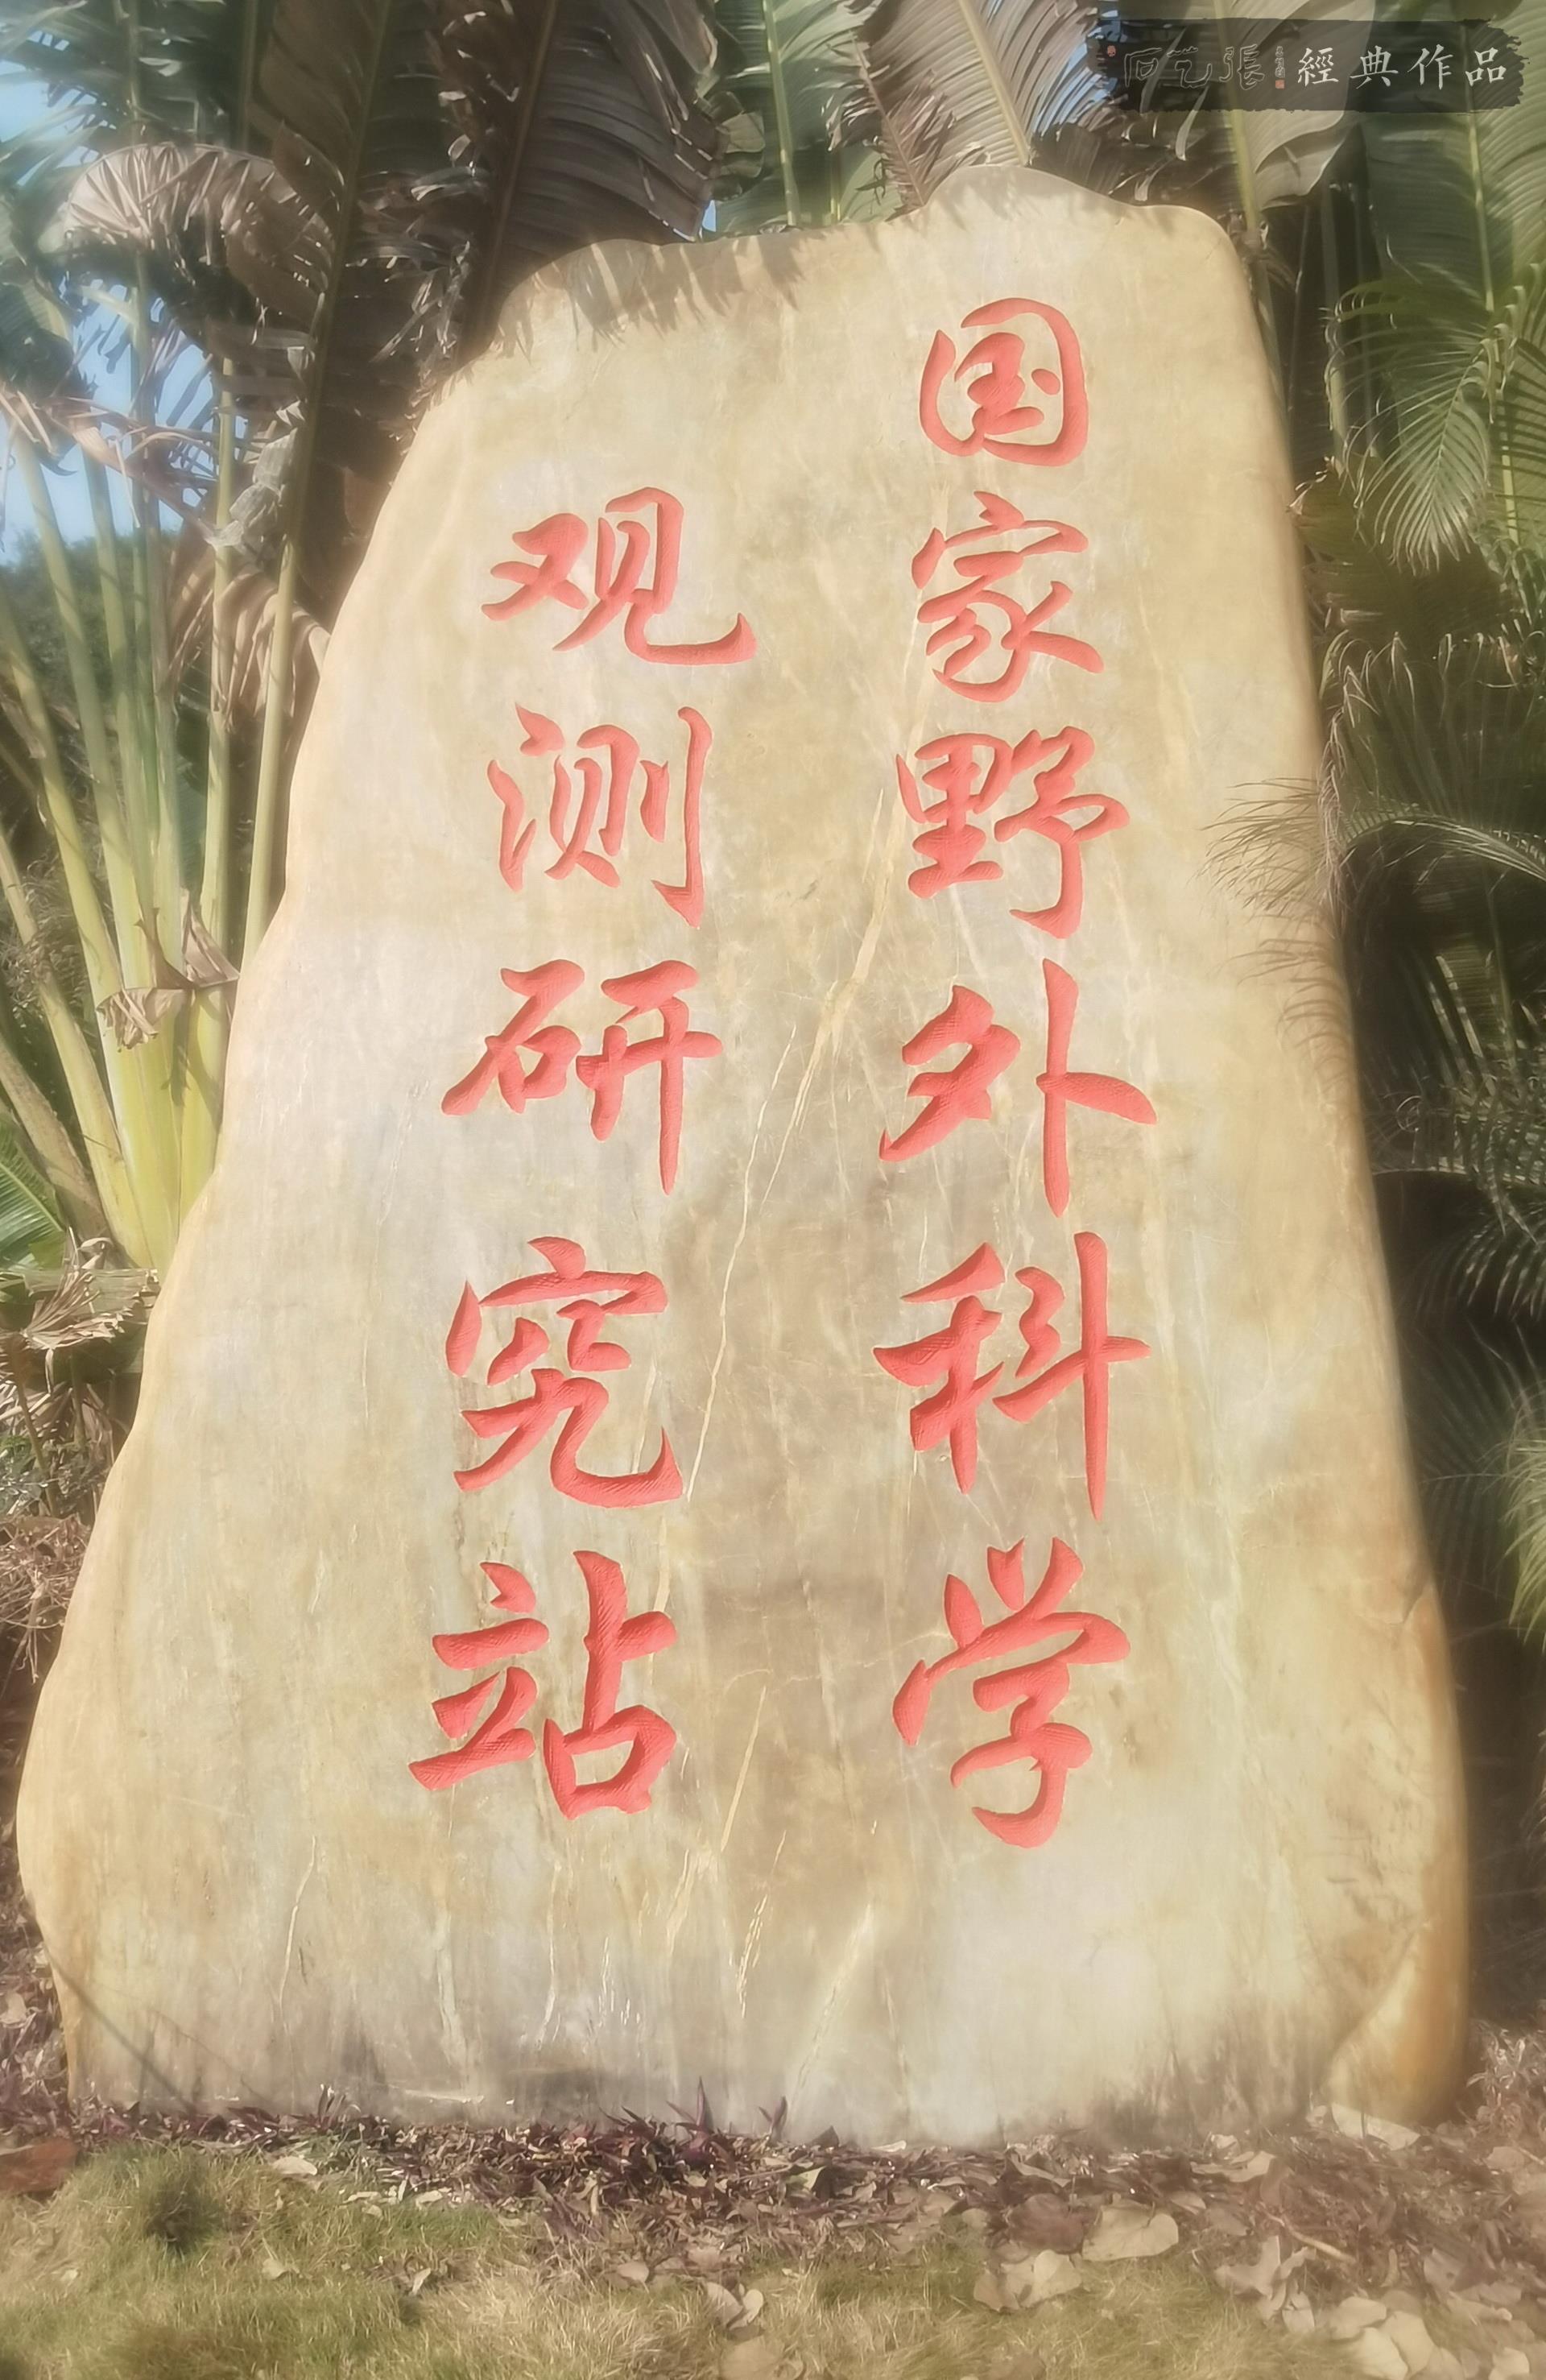 国家野外科学
观测研究站
張艺石 經典作品